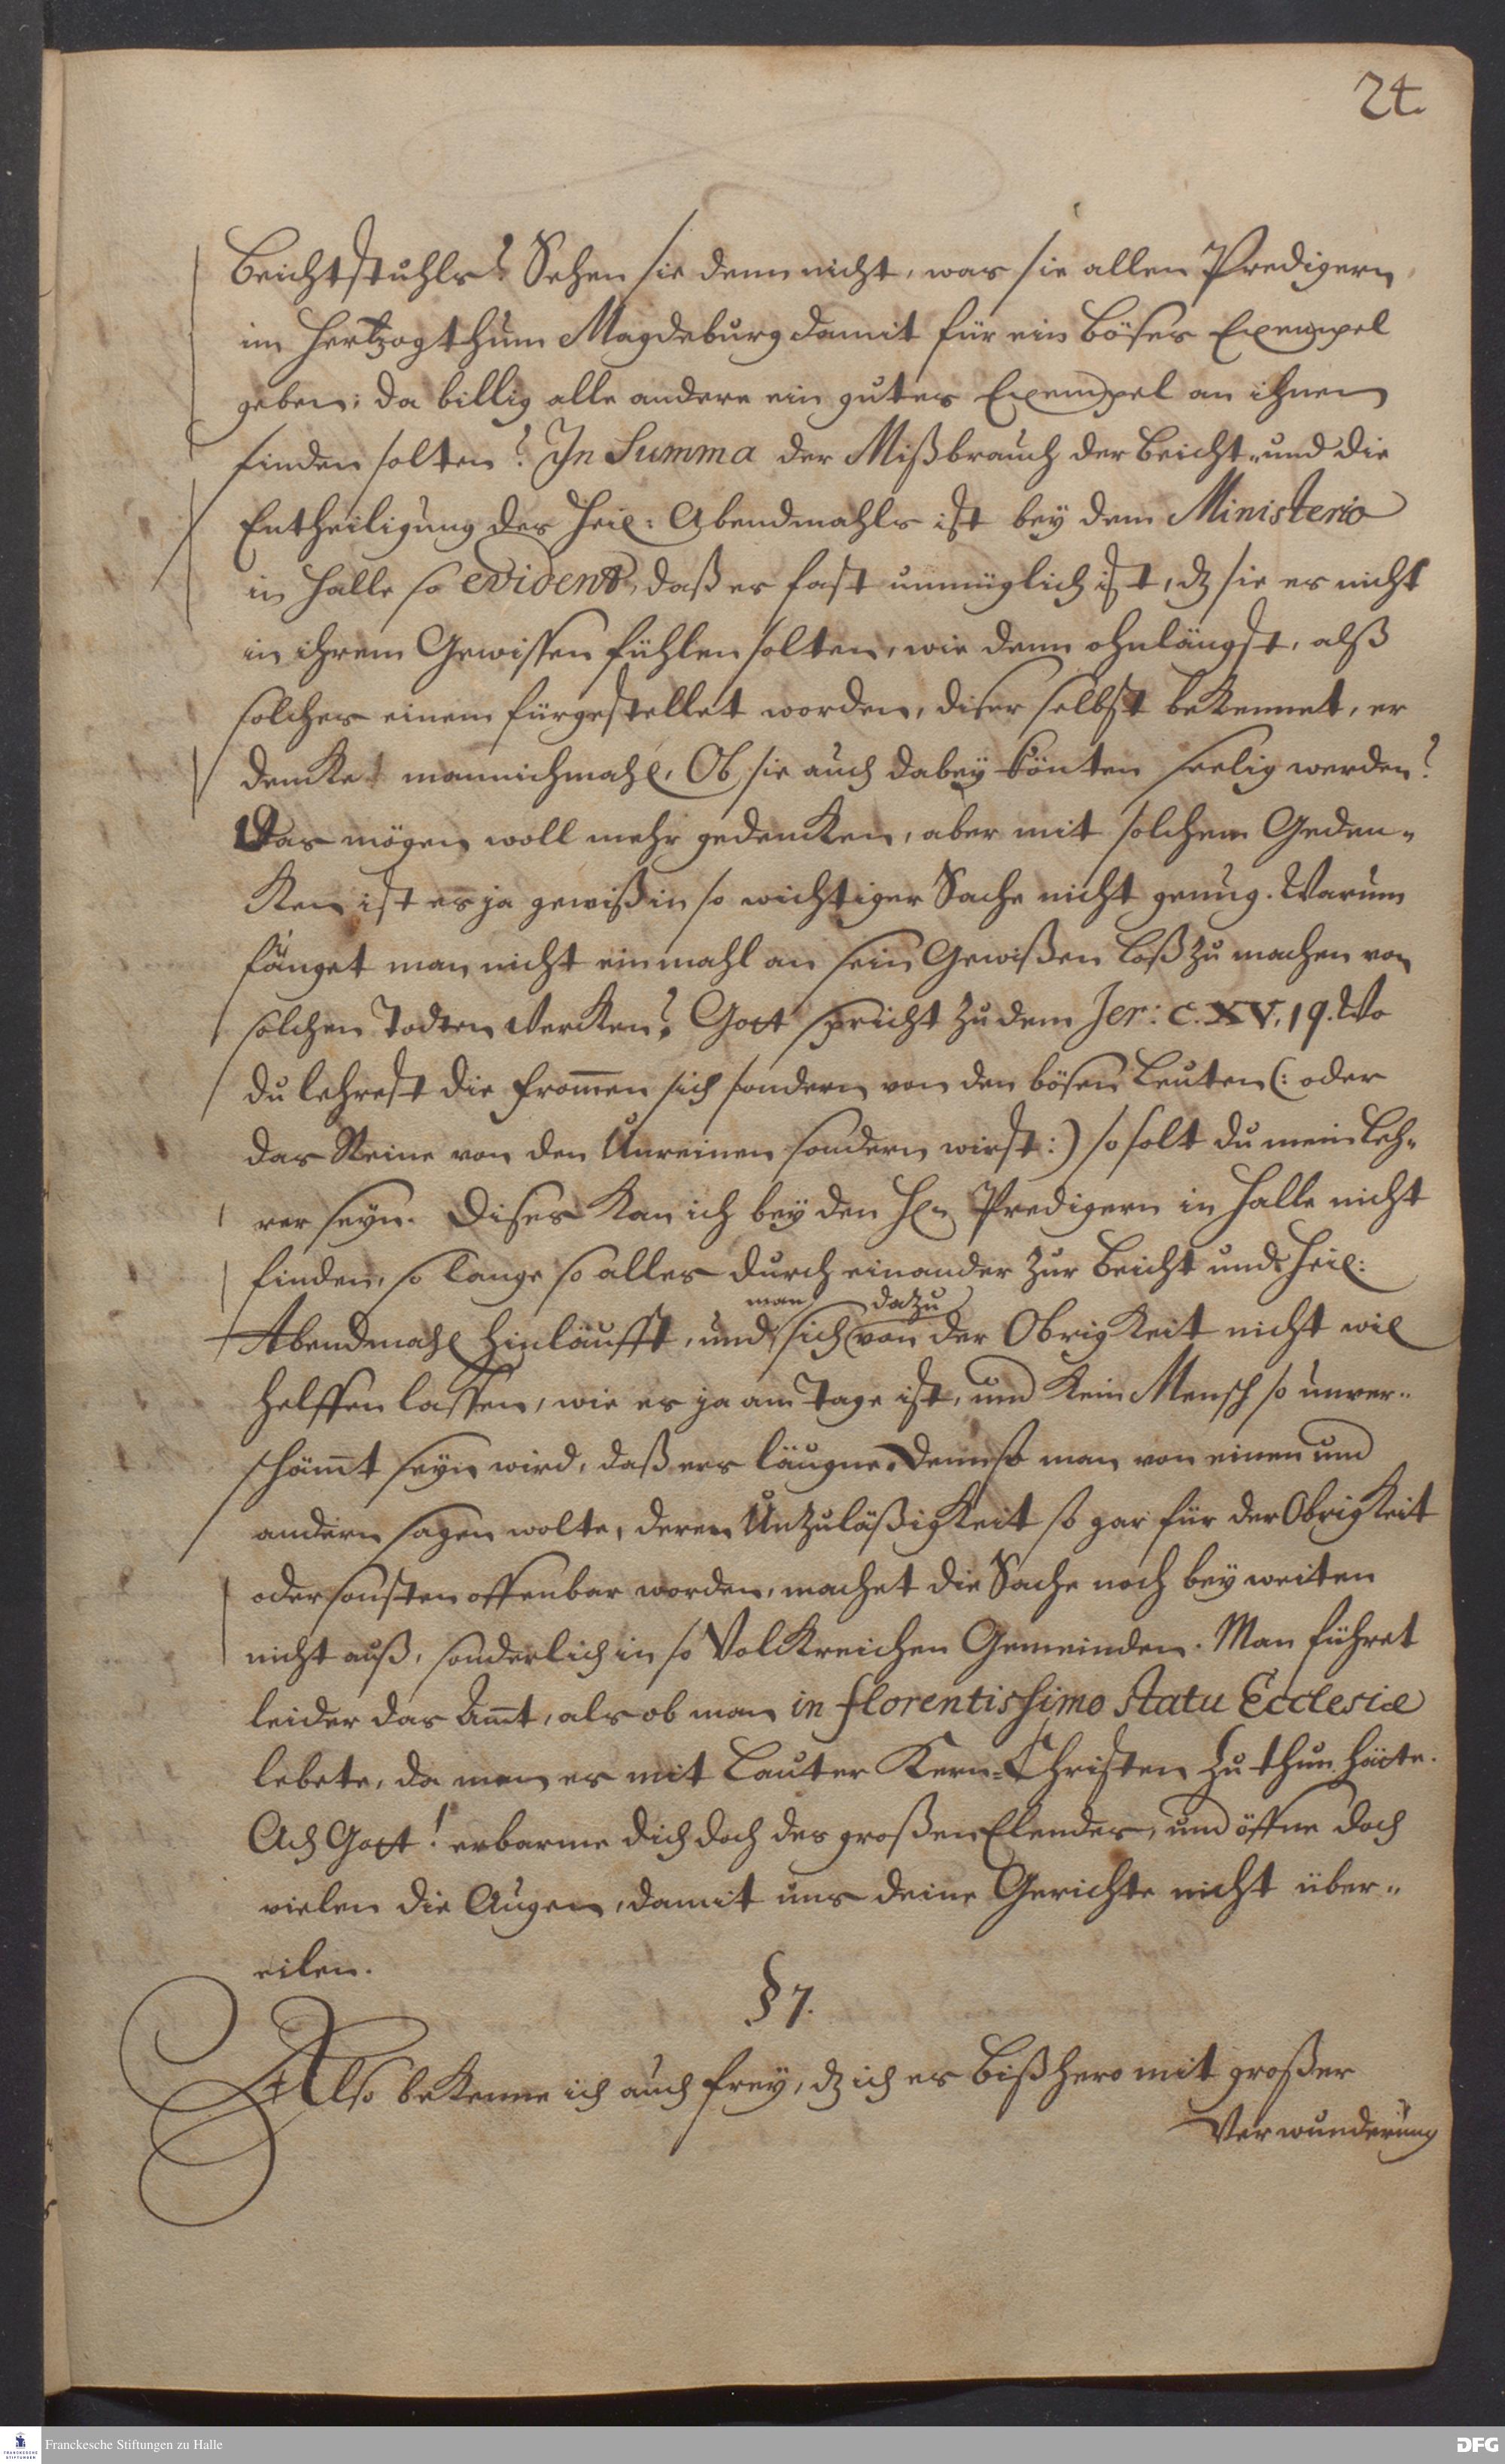 24.
Beichtstuhls? Sehen sie denn nicht, was sie allen Predigern
im Hertzogthum Magdeburg damit für ein böses Exempel
geben; da billig alle andere ein gutes Exempel an ihnen
finden solten? In Summa der Mißbrauch der Beicht- und die
Entheiligung des Heil: Abendmahls ist bey dem Ministerio
in Halle so evident, daß es fast unmüglich ist, dz sie es nicht
in ihrem Gewissen fühlen solten, wie denn ohnlängst, alß
solches einem fürgestellet worden, diser selbst bekennet, er
dencke mannichmahl, Ob sie auch dabey könten seelig werden?
Das mögen woll mehr gedencken, aber mit solchem Geden-
ken ist es ja gewiß in so wichtiger Sache nicht genug. Warum
fänget man nicht einmahl an sein Gewißen loß zu machen von
solchen Todten Wercken? Gott spricht zu dem Jer: c. XV, 19. Wo
du lehrest die from̄en sich sondern von den bösen Leuten (: oder
das Reine von den Unreinen sondern wirst:) so solt du mein Leh-
rer seyn. Dises kan ich bey den Hln Predigern in Halle nicht
finden, so lange so alles durch einander zur Beicht und Heil:
man dazu
Abendmahl hinläufft, und sich von der Obrigkeit nicht wil
helffen lassen, wie es ja am Tage ist, und kein Mensch so unver-
schäm̄t seyn wird, daß ers läugne. Denn so man von einen und
andern sagen wolte, deren Unzuläßigkeit so gar für der Obrigkeit
oder sonsten offenbar worden, machet die Sache noch bey weiten
nicht auß, sonderlich in so Volckreichen Gemeinden. Man führet
leider das Am̄t, als ob man in florentissimo statu Ecclesiæ
lebete, da man es mit lauter Kern-Christen zu thun hätte.
Ach Gott! erbarme dich doch des großen Elendes, und öffne doch
vielen die Augen, damit uns deine Gerichte nicht über-
eilen.
§ 7.
Also bekenne ich auch frey, dz ich es bißhero mit großer
Verwunderung
Franckesche Stiftungen zu Halle
FRANCKESCHE STIFTUNGEN
DFG